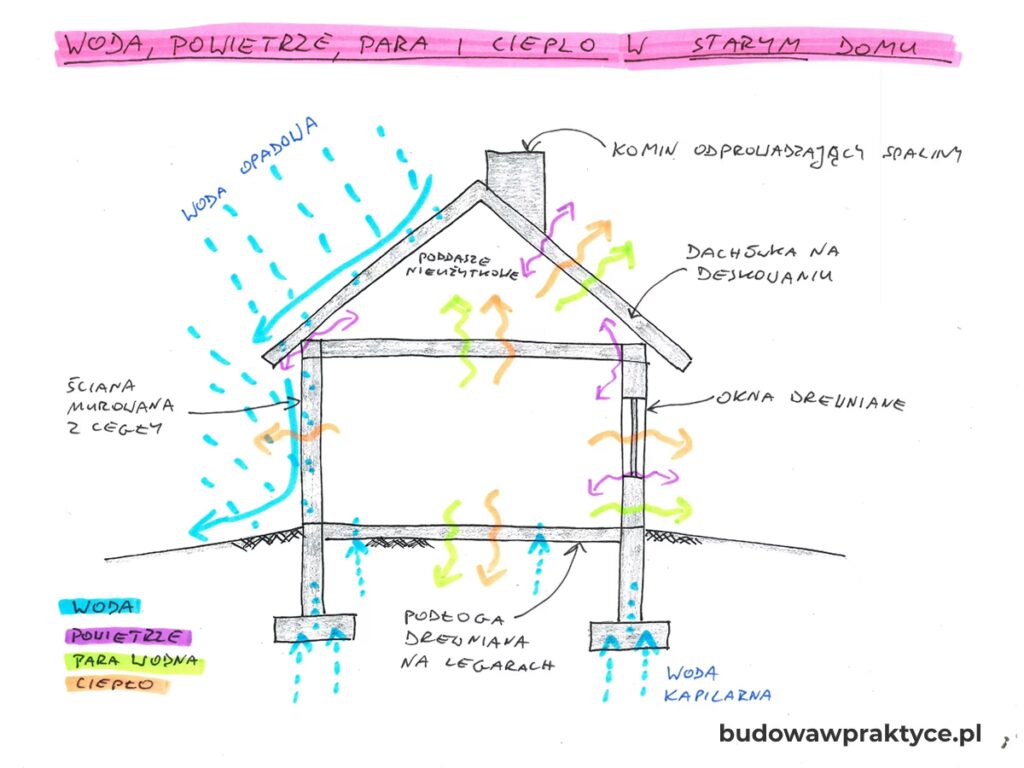 WODA, POWIETRZE, PARA I CIEPŁO W STARYM DOMU
WODA OPADOWA
KOMIN ODPROWADZAJĄCY SPALINY
PODDASZE
NIEUŻYTKOWE
DACHÓWKA NA
DESKOWANIU
ŚCIANA
MUROWANA
Z CEGŁY
OKNA DREWNIANE
WODA
POWIETRZE
PARA WODNA
CIEPŁO
PODŁOGA
DREWNIANA
NA LEGARACH
WODA
KAPILARNA
budowawpraktyce.pl